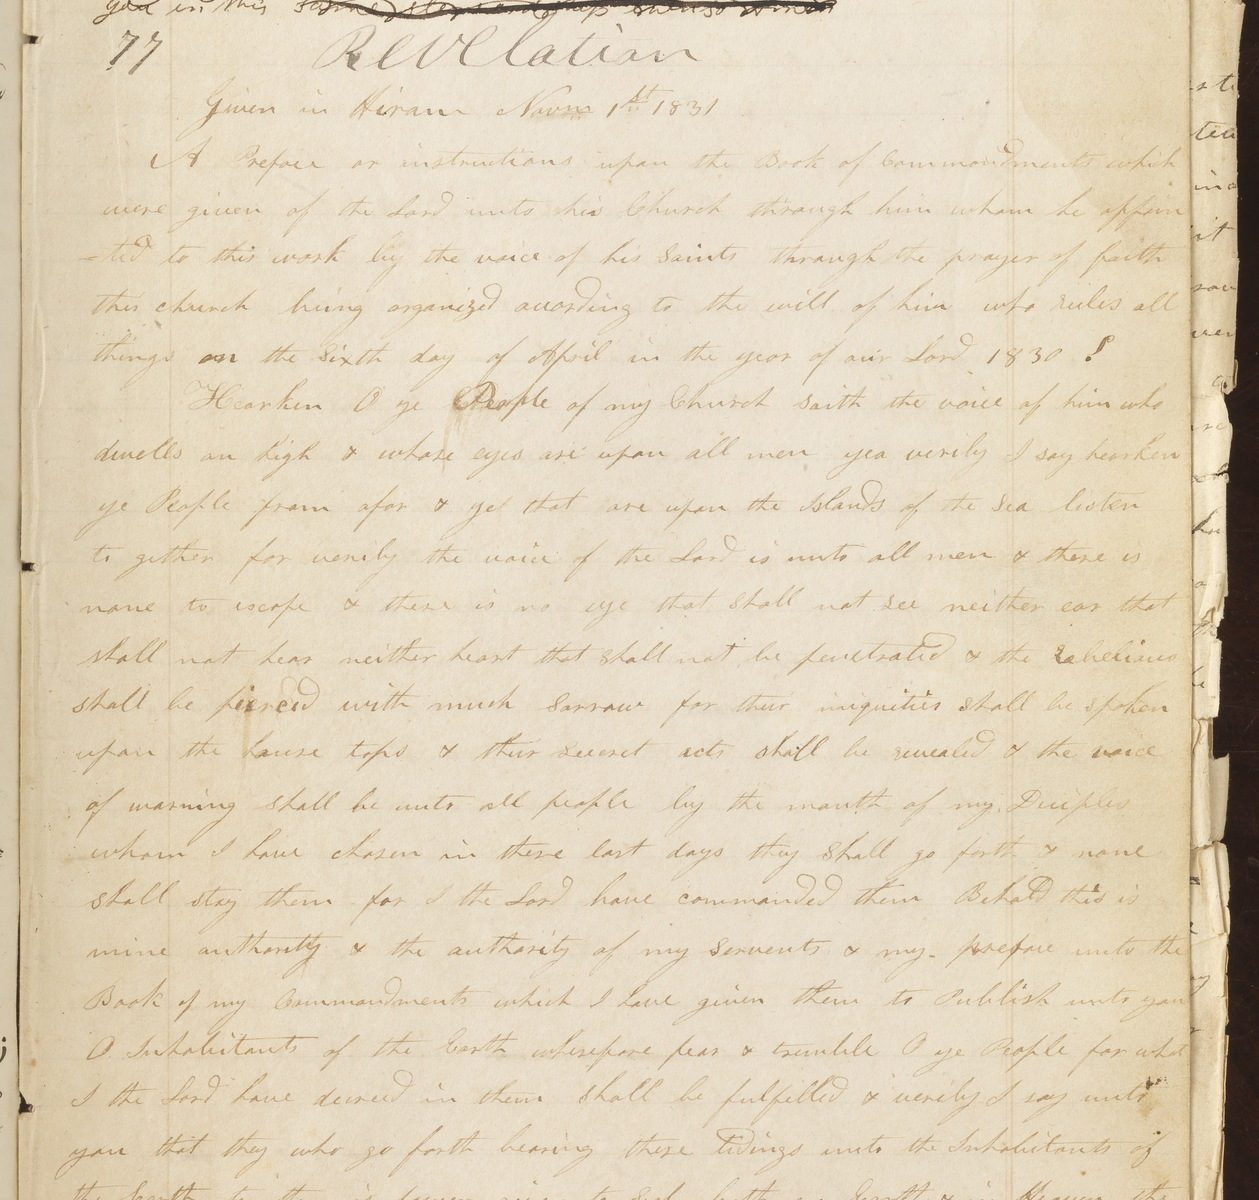 you in this
77 Revelation
Given in Hiram Novm 1st 1831
A Preface or instructions upon the Book of Commandments which
were given of the Lord unto his Church through him whom he appoin
-ted to this work by the voice of his Saints through the prayer of faith
this church being organized according to the will of him who rules all
things on the Sixth day of April in the year of our Lord 1830
Hearken O ye People of my Church saith the voice of him who
dwells on high & whose eyes are upon all men yea verily I say hearken
ye People from afar & ye that are upon the Islands of the Sea listen
to gether for verily the voice of the Lord is unto all men & there is
none to escape & there is no eye that shall not see neither ear that
shall not hear neither heart that shall not be penetrated & the
shall be pierced with much sorrow for their iniquities shall be spoken
upon the house tops & their secret acts shall be revealed & the voice
of warning shall be unto all people by the mouth of my Diciples
whom I have chosen in these last days they shall go forth & none
shall stay them for I the Lord have commanded them Behold this is
mine authority & the authority of my Servents & my preface unto the
Book of my Commandments which I have given them to Publish unto you
O Inhabitants of the Earth wherefore fear & tremble O ye People for what
I the Lord have decreed in them shall be fulfilled & verily I say unto
you that they who go forth bearing these tidings unto the Inhabitants of
the Earth to them is power given to seal both on Earth & in Heaven the